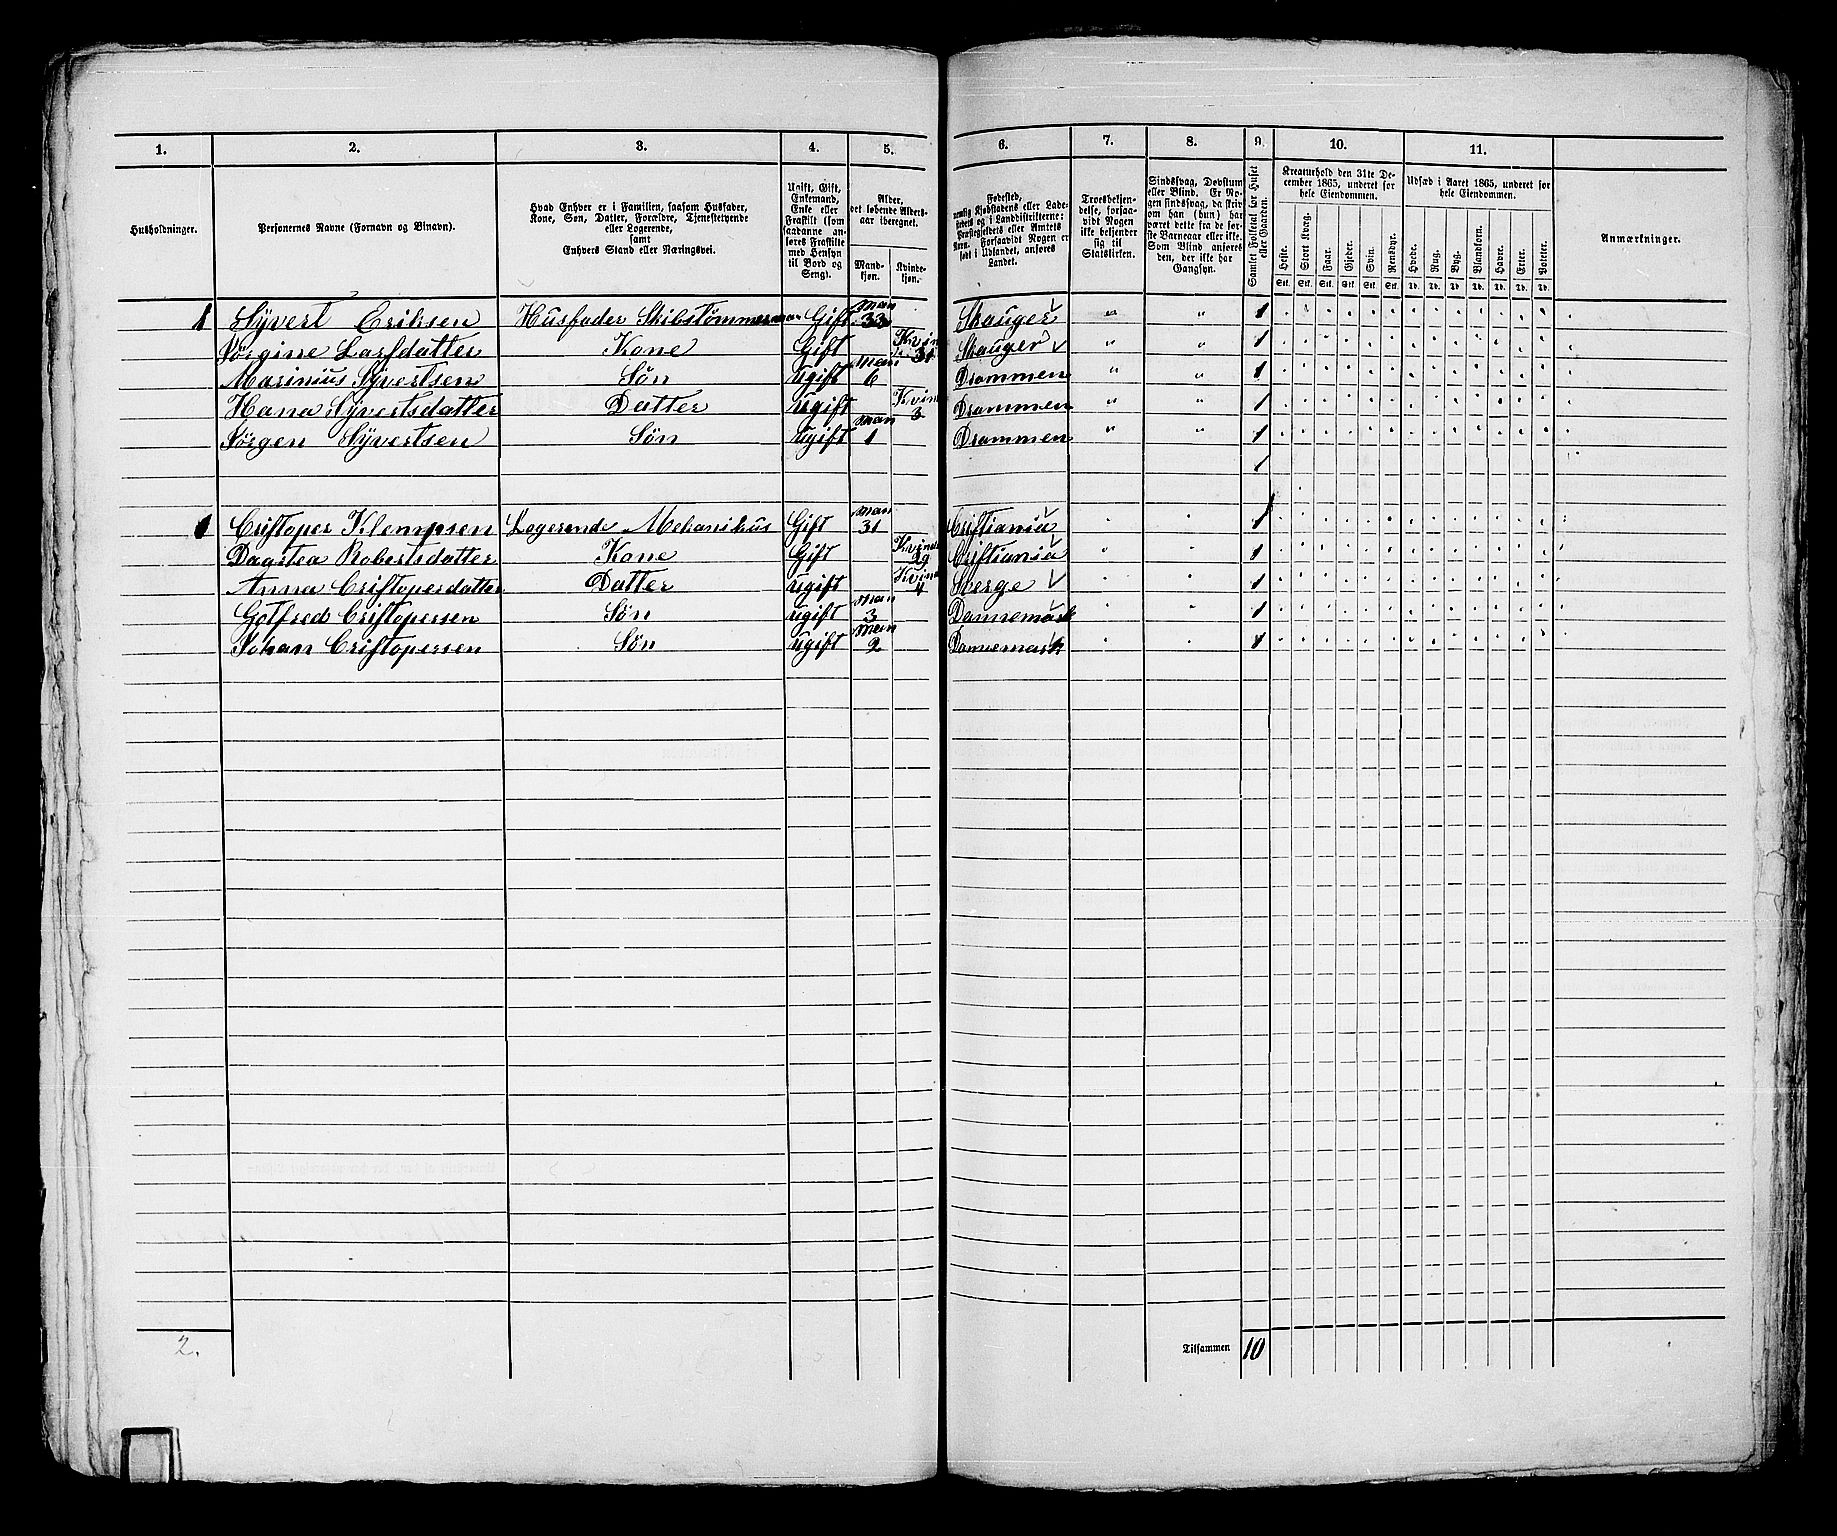 1. 2. 3. 4. 5. 6. 7. 8. 9. 10. 11.
Husholdninger.
Personernes Navne (Fornavn og Binavn).
Hvad Enhver er i Familien, saasom Husfader,
Kone, Søn, Datter, Forældre, Tjenestetyende
eller Logerende,
samt
Enhvers Stand eller Næringsvei.
Ugift, Gift,
Enkemand,
Enke eller
Fraskilt (som
saadanne an-
føres Fraskilte
med Hensyn
til Bord og
Seng).
Alder,
det løbende Alders-
aar iberegnet.
Mand-
kjøn.
Kvinde-
kjøn.
Fødested,
nemlig Kjøbstadens eller Lade-
stedets og i Landdistrikterne:
Præstegjeldets eller Amtets
Navn. Forsaavidt Nogen er
født i Udlandet, anføres
Landet.
Troesbekjen-
delse, forsaa-
vidt Nogen
ikke bekjender
sig til
Statskirken.
Sindssvag, Døvstum
eller Blind. Er No-
gen sindssvag, da skriv
om han (hun) har
været dette fra de før-
ste Barneaar eller ikke.
Som Blind anføres
den, der ikke har
Gangsyn.
Samlet Folketal for Huset
eller Gaarden.
Kreaturhold den 31te De-
cember 1865, underet for
hele Eiendommen.
Heste. Stort Kvæg. Faar. Gjeder. Svin. Rensdyr.
Stk. Stk. Stk. Stk. Stk. Stk.
Udsæd i Aaret 1865, underet for
hele Eiendommen.
Hvede. Rug. Byg. Blandkorn. Havre. Erter. Poteter.
Td. Td. Td. Td. Td. Td. Td.
Anmærkninger.
1 Syvert Eriksen Husfader Skibstømmerman Gift Man 33 Skauger " " 1
Sørgine Larsdatter Kone Gift Kvin 31 Skauger " " 1
Marinius Syvertsen Søn ugift Man 6 Drammen " " 1
Hana Syvertsdatter Datter ugift Kvin 3 Drammen " " 1
Jørgen Syvertsen Søn ugift Man 1 Drammen " " 1
1 Cristoper Klempsen Logerende Mekanikus Gift Man 31 Cristiania 1
Dagstea Robertsdatter Kone Gift Kvinde 29 Cristiania 1
Anna Cristopersdatter Datter ugift Kvin 4 Sverge 1
Gotfred Cristopersen Søn ugift Man 3 Dannemark 1
Johan Cristopersen Søn ugift Man 2 Dannemark 1
2. Tilsammen 10